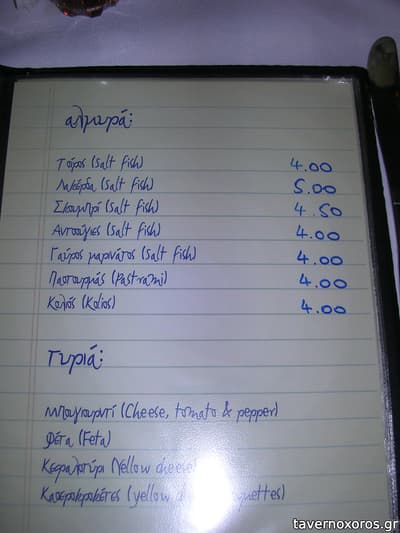 αλμυρά:
Τσίρος (salt fish) 4.00
Λακέρδα (salt fish) 5.00
Σκουμπρί (salt fish) 4.50
Αντσούγιες (salt fish) 4.00
Γαύρος μαρινάτος (salt fish) 4.00
Παστουρμάς (Pastrami) 4.00
Κολιός (Kolios) 4.00
Τυριά:
Μπουγιουρντί (Cheese, tomato & pepper)
Φέτα (Feta)
Κεφαλοτύρι Yellow cheese
(yellow
tavernoxoros.gr